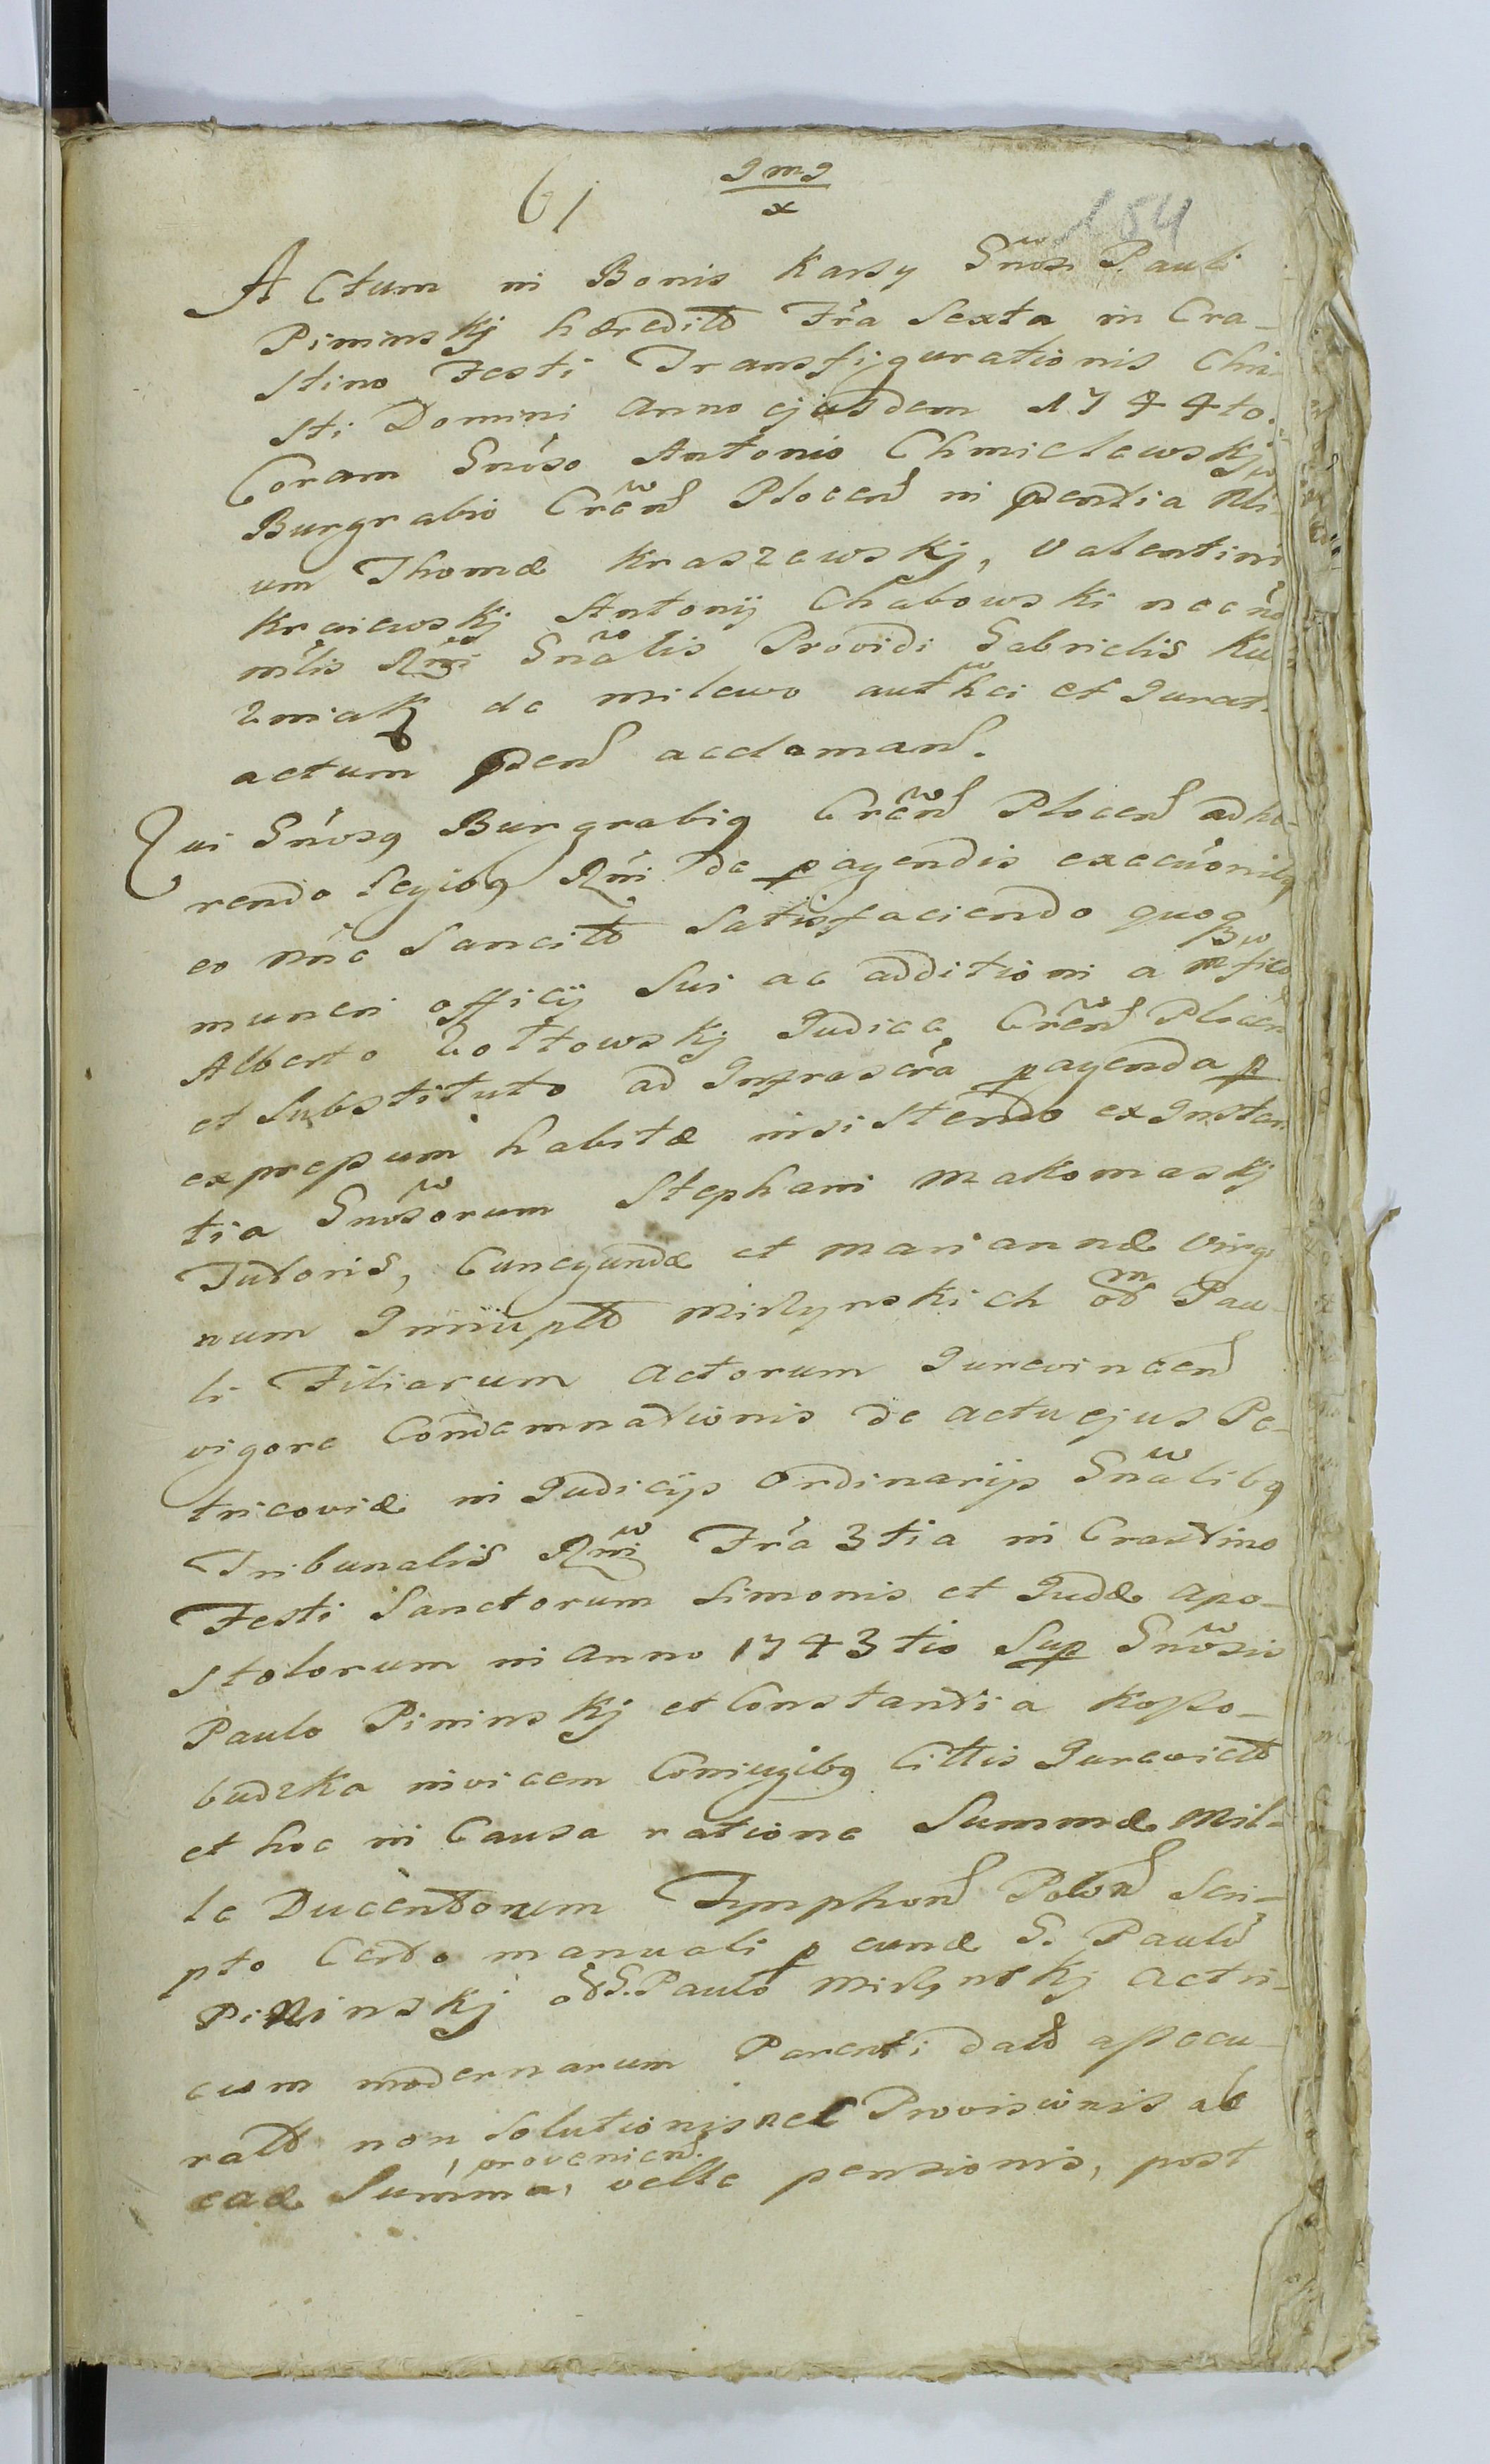 61 JMJ 184
x
Actum in Bonis Karsy Gnosi Pauli
Pininskj hæredit Fra Sexta in Cra-
stino Festi Transfigurationis Chri-
sti Domini Anno ejusdem 1744to.
Coram Gnoso Antonio Chmielewskj
Burgrabio Crên Plocen in pdentia Nli-
um Thomæ Kraszewskj, Valentini
Kraiewskj Antonij Chabowski necno
mlis Rni Gnalis Providi Gabrielis Ku-
zniak de Milewo authci et Jurat
actum pden acclaman.
Qui Gnosq Burgrabiq Crên Plocen adhæ-
rendo legibq Rni de pagendis execuonibq
eo nnc sancitt satisfaciendo quoq
muneri officij sui ac additioni a Mfico
Alberto Zołtowskj Judice Crên Plocen
et substituto ad Infrascra pagenda p
expressum habitæ insistendo ex Instan
tia Gnosorum Stephani Makomaskj
Tutoris, Cunegundæ et Mariannæ Virgi
num Innuptt Mislynskich om Pau-
li Filiarum Actorum Jurevincen
vigore Condemnationis de actu ejus Pe-
tricoviæ in Judicijs Ordinarijs Gnalibq
Tribunalis Rni Fra 3tia in Crastino
Festi Sanctorum Simonis et Judæ Apo-
stolorum in Anno 1743tio Sup Gnosis
Paulo Pininskj et Constantia Kosso-
budzka invicem Coniugibq Cittis Jurevictt
et hoc in Causa ratione Summæ Mil-
le Ducentorum Tynphon Polon Scri-
pto Certo manuali p eundæ G. Paulu
Pininskj od G. Paulo Mislynskj Actri-
cum modernarum Parenti datt assecu-
ratt non Solutionis nec Provisionis ab
eadæ Summa, provenien. velle pensionis, post